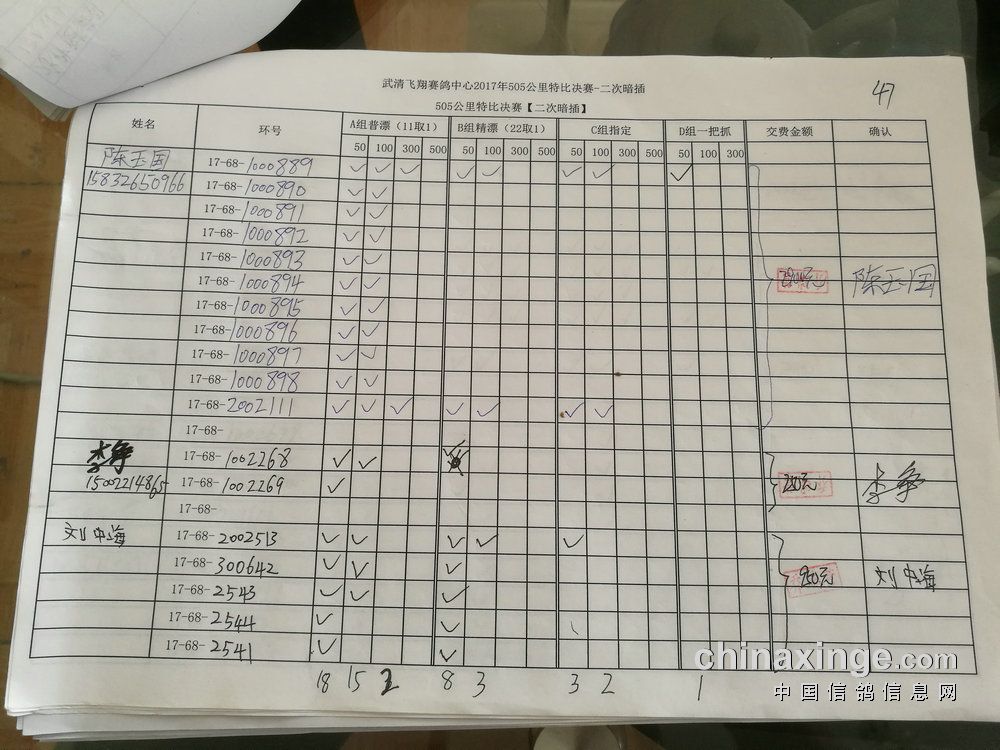 武清飞翔赛鸽中心2017年505公里特比决赛-二次暗插
47
505公里特比决赛【二次暗插】
姓名 环号 A组普漂（11取1） B组精漂（22取1） C组指定 D组一把抓 交费金额 确认
50 100 300 500 50 100 300 500 50 100 300 500 50 100 300
陈玉国 17-68-1000889 ✓ ✓ ✓ ✓ ✓ ✓ ✓ ✓
15832650966 17-68-1000890 ✓ ✓
17-68-1000891 ✓ ✓
17-68-1000892 ✓ ✓
17-68-1000893 ✓ ✓
17-68-1000894 ✓ ✓ 陈玉国
17-68-1000895 ✓ ✓
17-68-1000896 ✓ ✓
17-68-1000897 ✓ ✓
17-68-1000898 ✓ ✓
17-68-2002111 ✓ ✓ ✓ ✓ ✓ ✓ ✓
17-68-
李争 17-68-1002268 ✓ ✓
15002214865 17-68-1002269 ✓ 李争
17-68-
刘中海 17-68-2002513 ✓ ✓ ✓ ✓ ✓
17-68-300642 ✓ ✓ ✓ 950元 刘中海
17-68-2543 ✓ ✓ ✓
17-68-2544 ✓ ✓
17-68-2541 ✓ ✓
18 15 2 8 3 3 2 1
chinaxinge.com
中国信鸽信息网